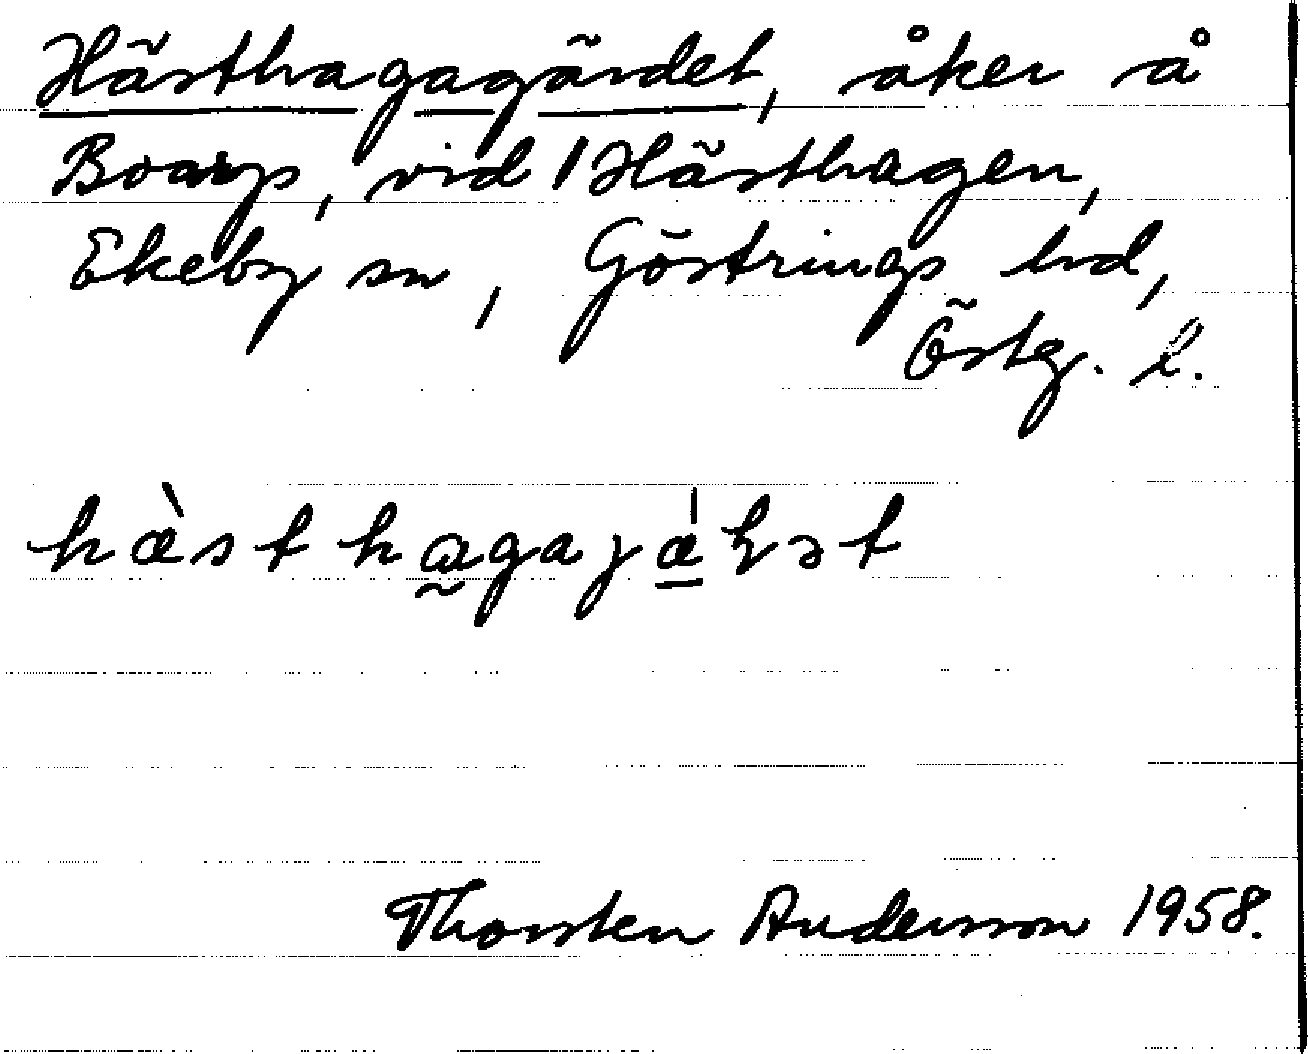 Hästhagagärdet, åker å
Boarp, vid 1 Hästhagen,
Ekeby sn, Göstrings hd,
Östg. l.
hæ̀sthaga
Thorsten Andersson 1958.